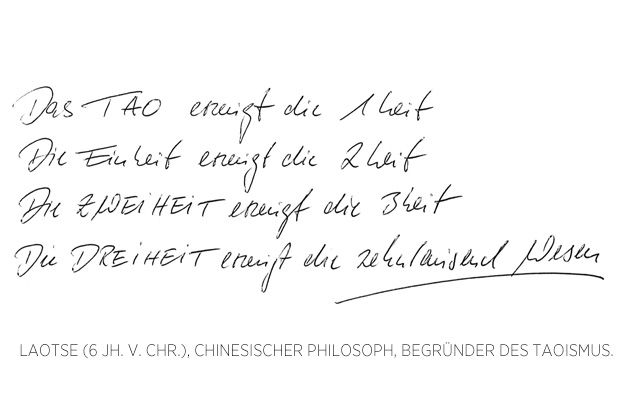 Das TAO erzeugt die 1heit
Die Einheit erzeugt die 2heit
Die ZWEIHEIT erzeugt die 3heit
Die DREIHEIT erzeugt die zehntausend Wesen
LAOTSE (6 JH. V. CHR.), CHINESISCHER PHILOSOPH, BEGRÜNDER DES TAOISMUS.